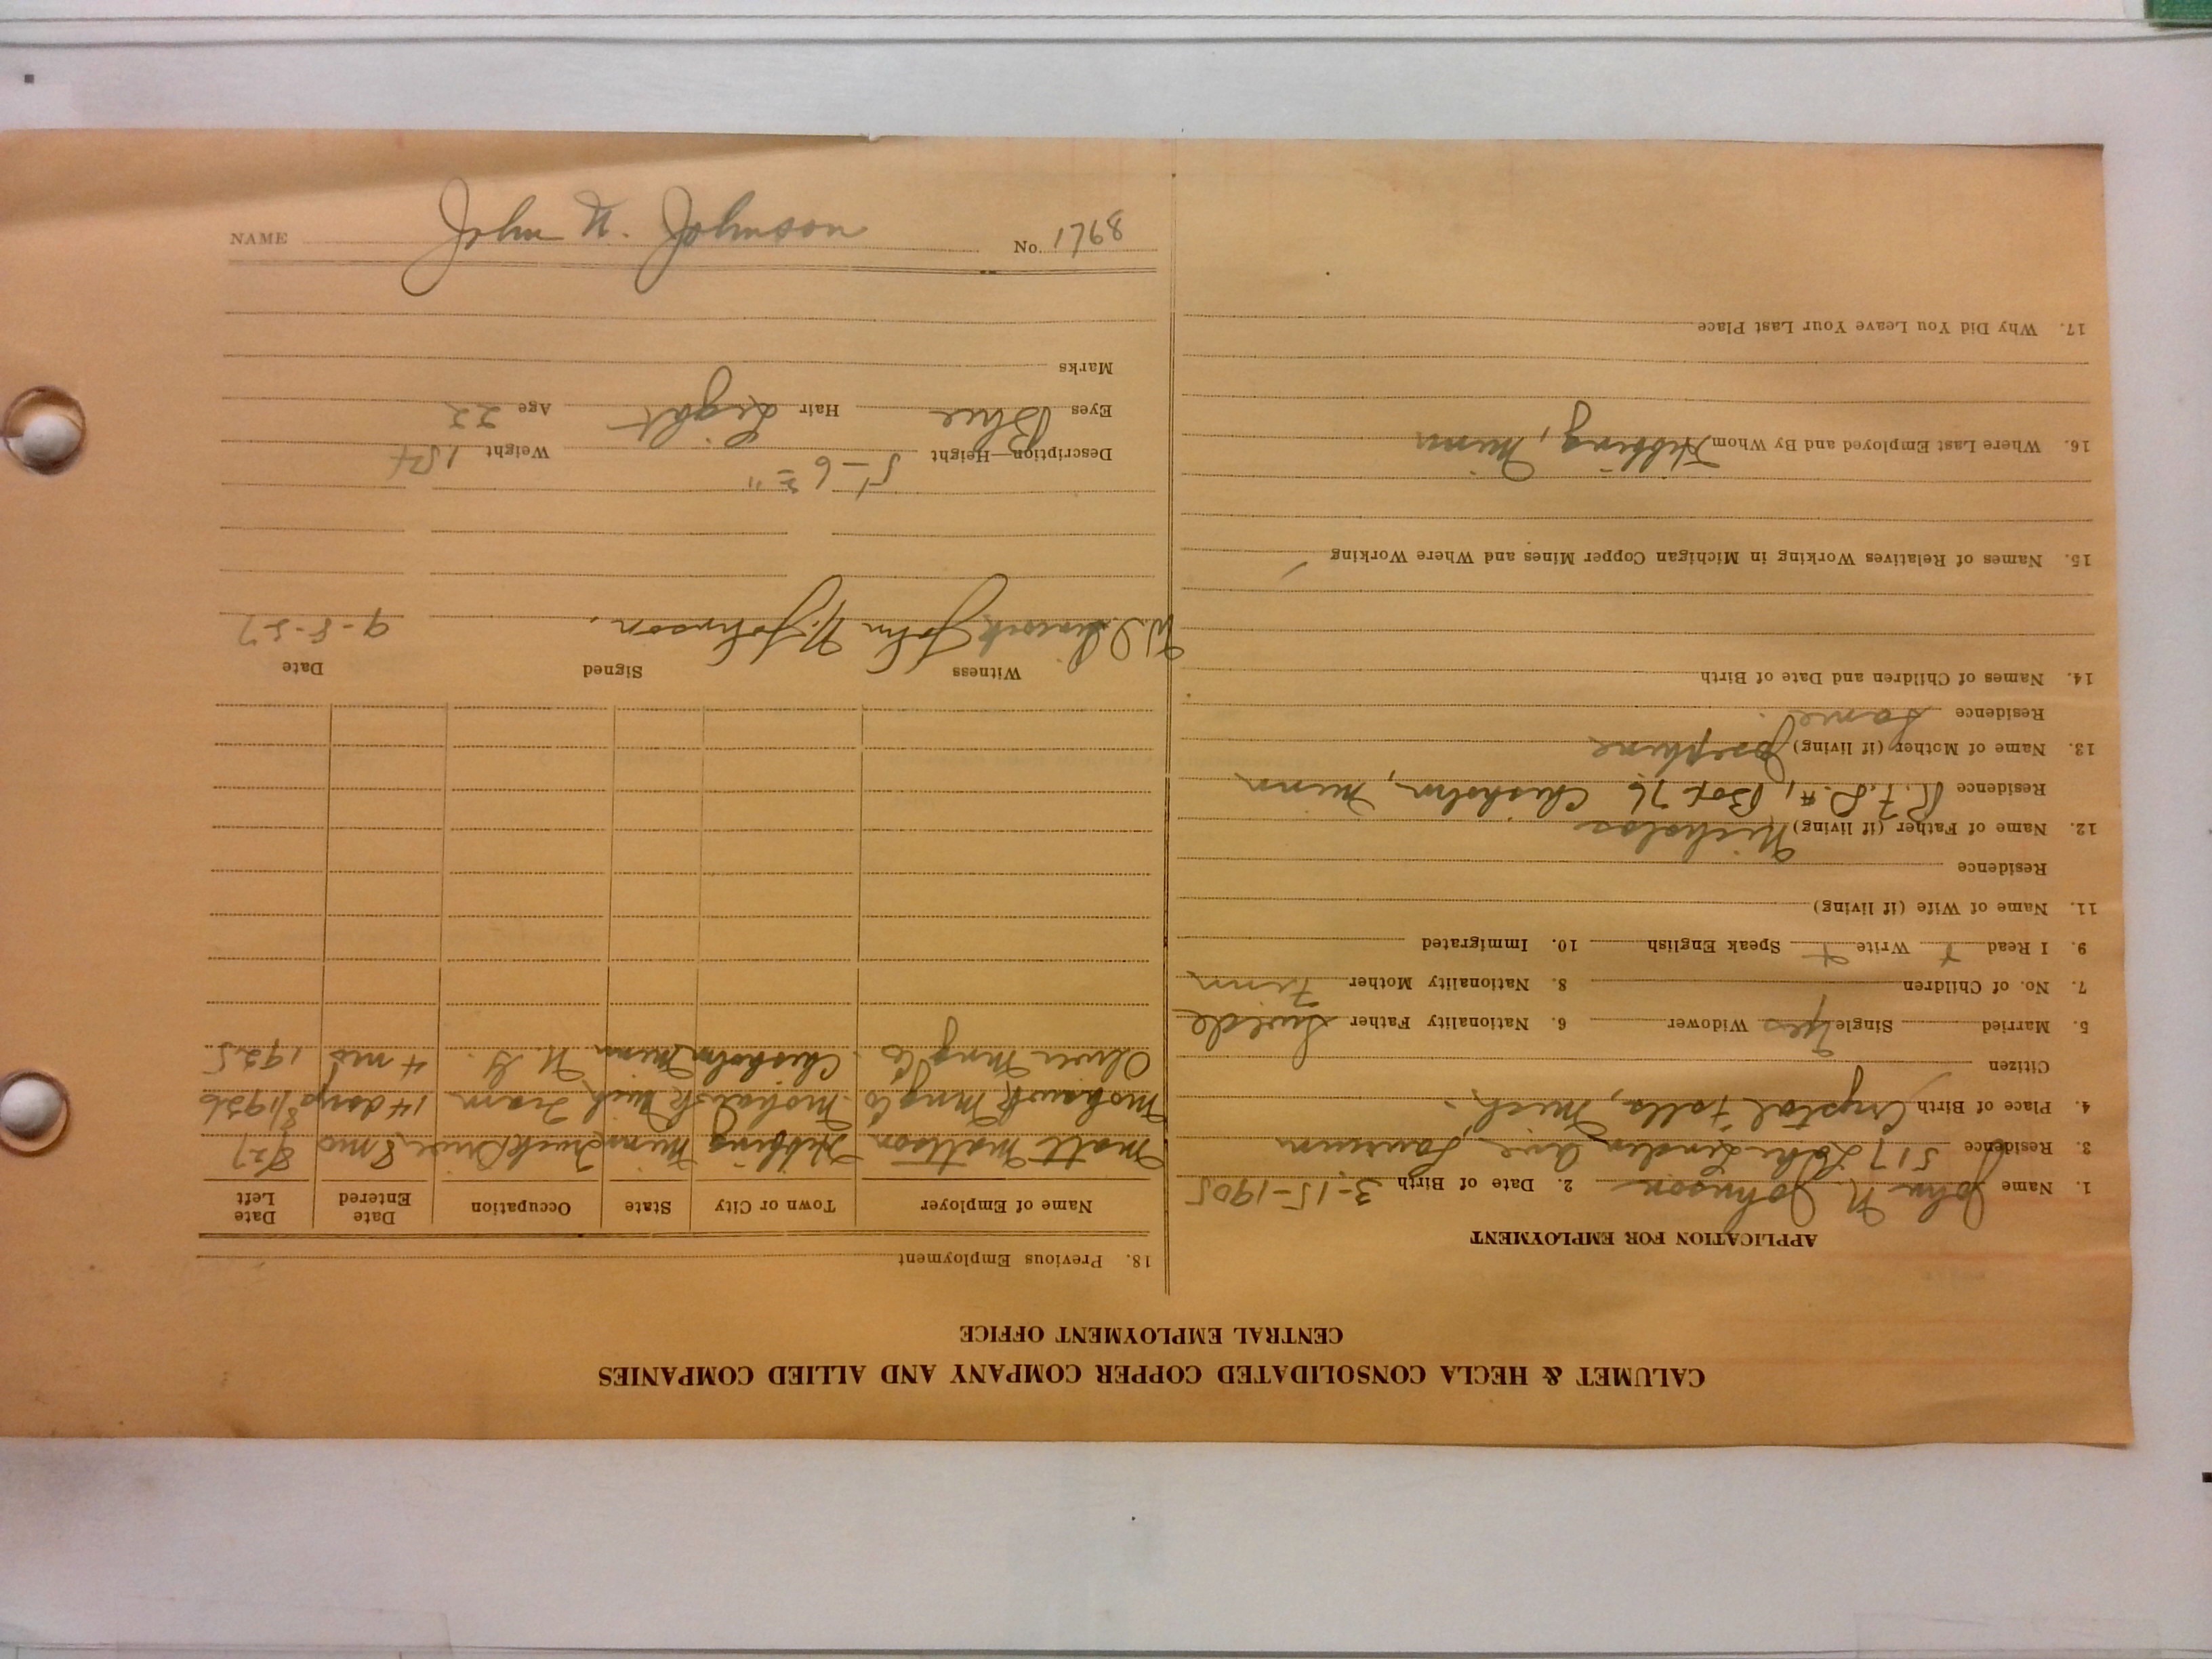 CALUMET & HECLA CONSOLIDATED COPPER COMPANY AND ALLIED COMPANIES
CENTRAL EMPLOYMENT OFFICE
APPLICATION FOR EMPLOYMENT
1. Name John N. Johnson 2. Date of Birth 3-15-1905
3. Residence 517 Lake Linden Ave Laurium
4. Place of Birth Crystal Falls, Mich.
Citizen
5. Married Single Yes Widower 6. Nationality Father Swede
7. No. of Children 8. Nationality Mother Finn
9. I Read + Write + Speak English 10. Immigrated
11. Name of Wife (if living)
Residence
12. Name of Father (if living) Nicholas
Residence R.F.D. #1 Box 76 Chisholm, Minn
13. Name of Mother (if living) Josephine
Residence Same.
14. Names of Children and Date of Birth
15. Names of Relatives Working in Michigan Copper Mines and Where Working
16. Where Last Employed and By Whom Hibbing, Minn
17. Why Did You Leave Your Last Place
18. Previous Employment
Name of Employer Town or City State Occupation Date Entered Date Left
Matt Mattson Hibbing Minn Truck Driver 8 mo 8/27
Mohawk Mng Co. Mohawk Mich Tram 14 days 8/1926
Oliver Mng Co. Chisholm Minn U. G. 4 mo 1925
Witness Signed Date
John N. Johnson. 9-8-27
Description—Height 5-6 Weight 154
Eyes Blue Hair Light Age 22
Marks
NAME John N. Johnson No. 1768